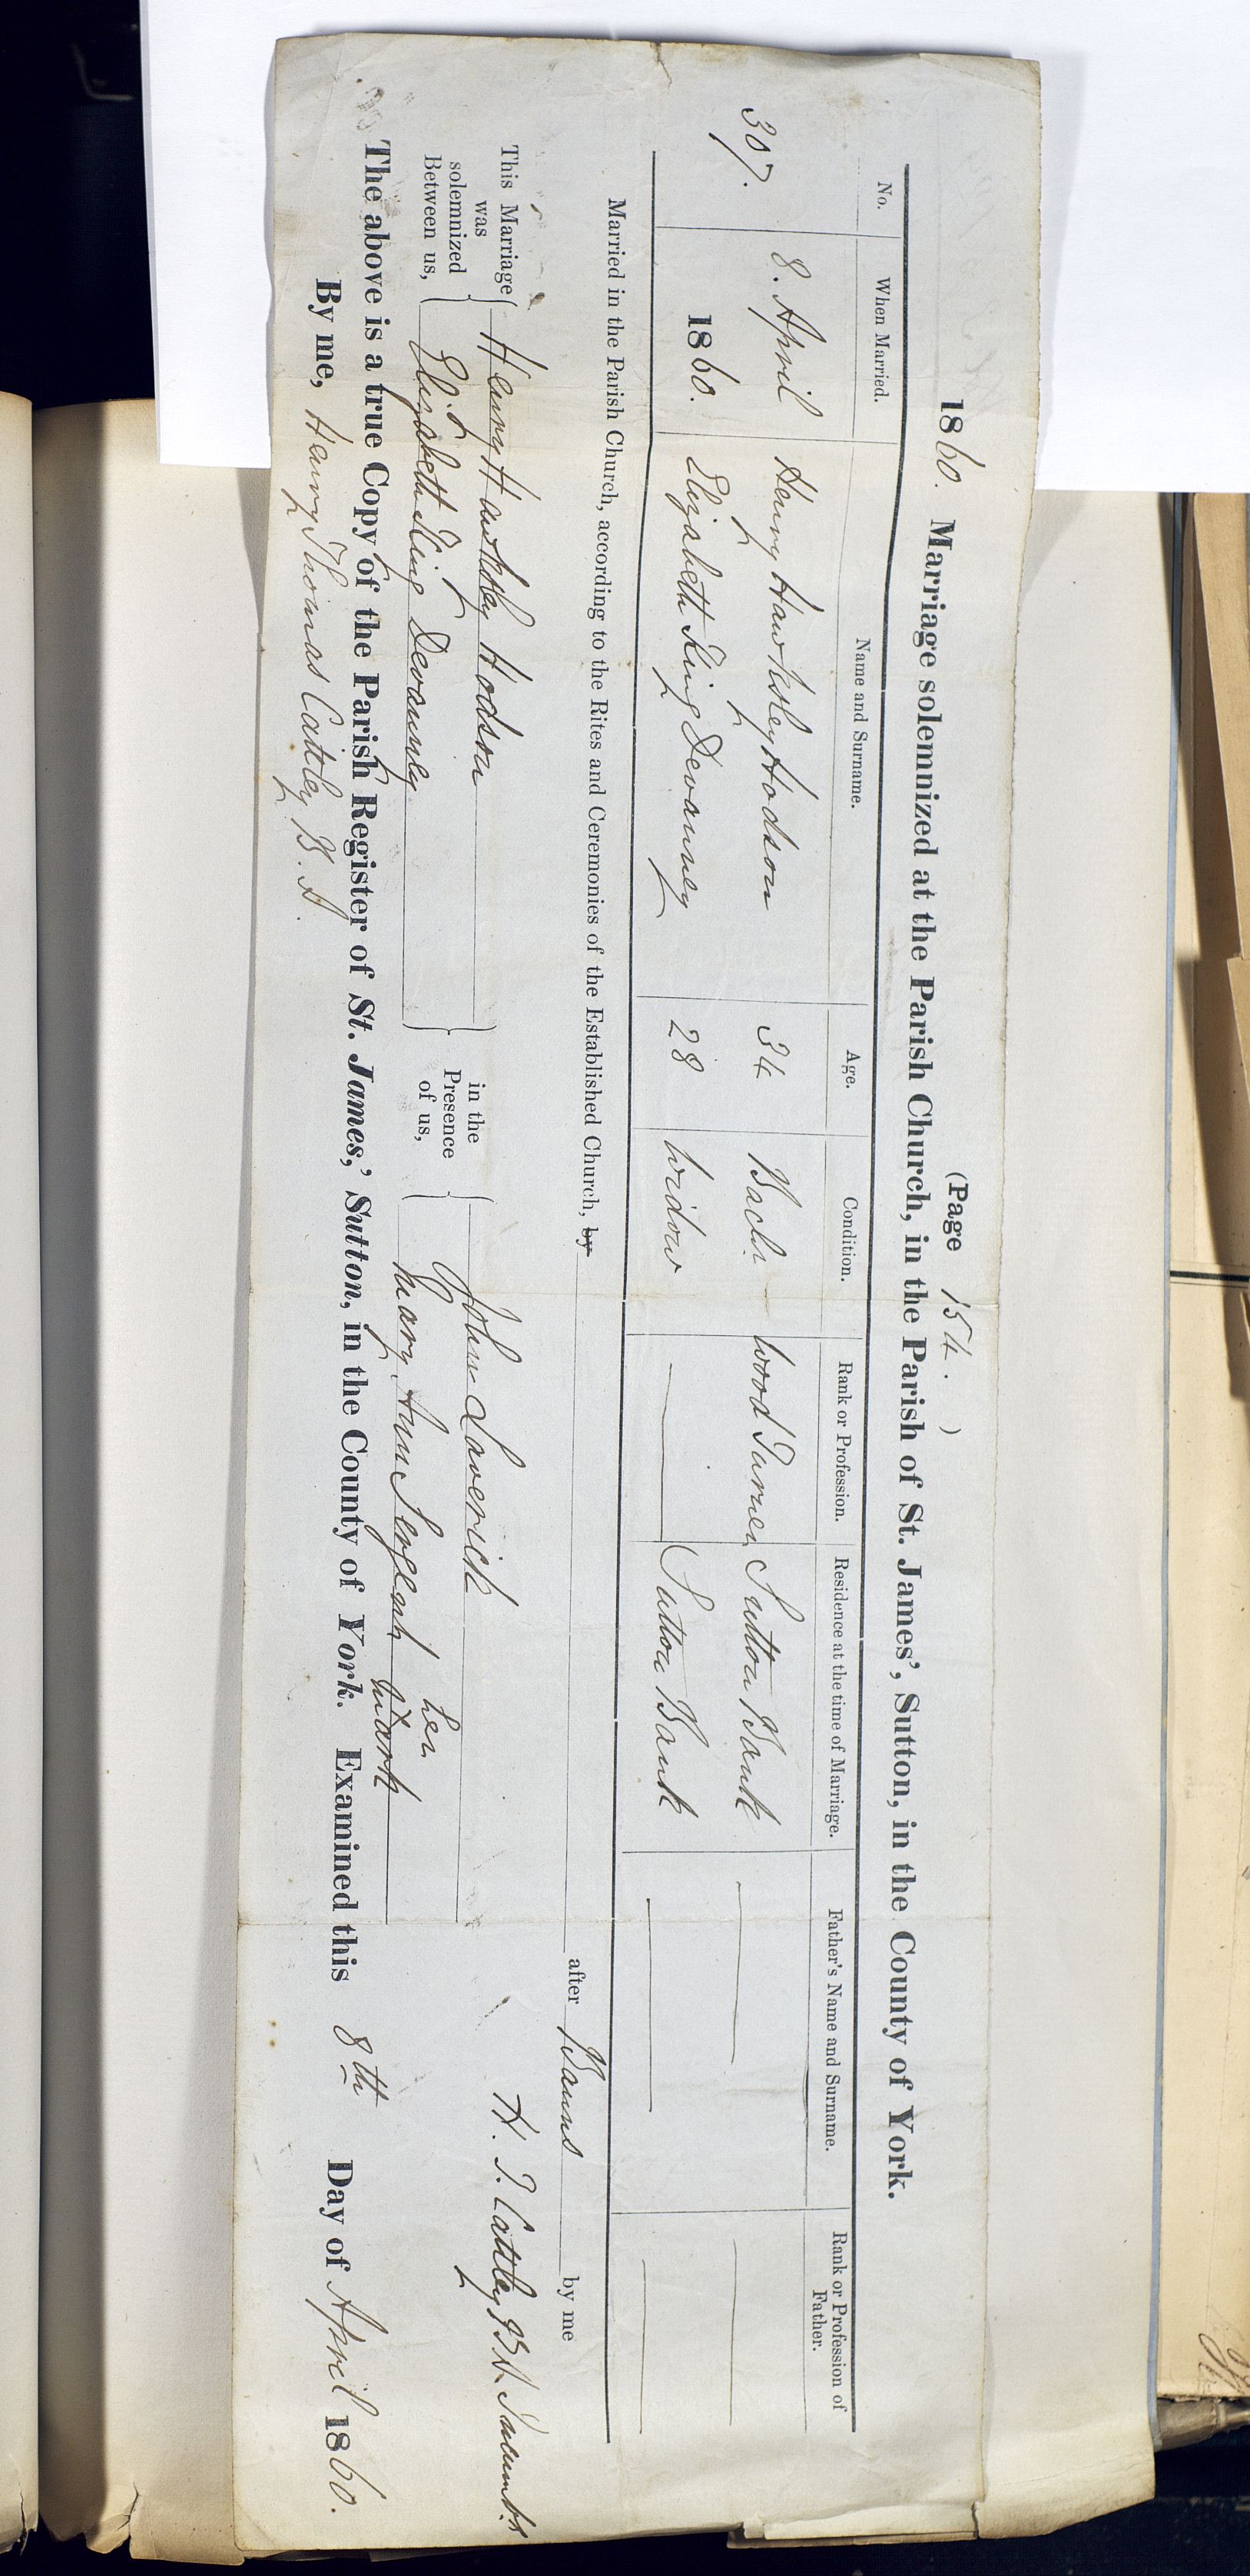 (Page 154. )
1860. Marriage solemnized at the Parish Church, in the Parish of St. James', Sutton, in the County of York.
No. When Married. Name and Surname. Age. Condition. Rank or Profession. Residence at the time of Marriage. Father's Name and Surname. Rank or Profession of Father.
307. 8. April Henry Hawksley Hodson 34 Bachr. Wood Turner Sutton Bank
1860. Elizabeth King Devanney 28 Widow Sutton Bank
Married in the Parish Church, according to the Rites and Ceremonies of the Established Church, by after Banns by me
This Marriage was solemnized Between us, Henry Hawksley Hodson in the Presence of us, John Laverick H. T. Cattley B.A. Incumbt.
Elizabeth King Devanney Mary Ann her mark
The above is a true Copy of the Parish Register of St. James,' Sutton, in the County of York. Examined this 8th Day of April 1860.
By me, Henry Thomas Cattley B.A.